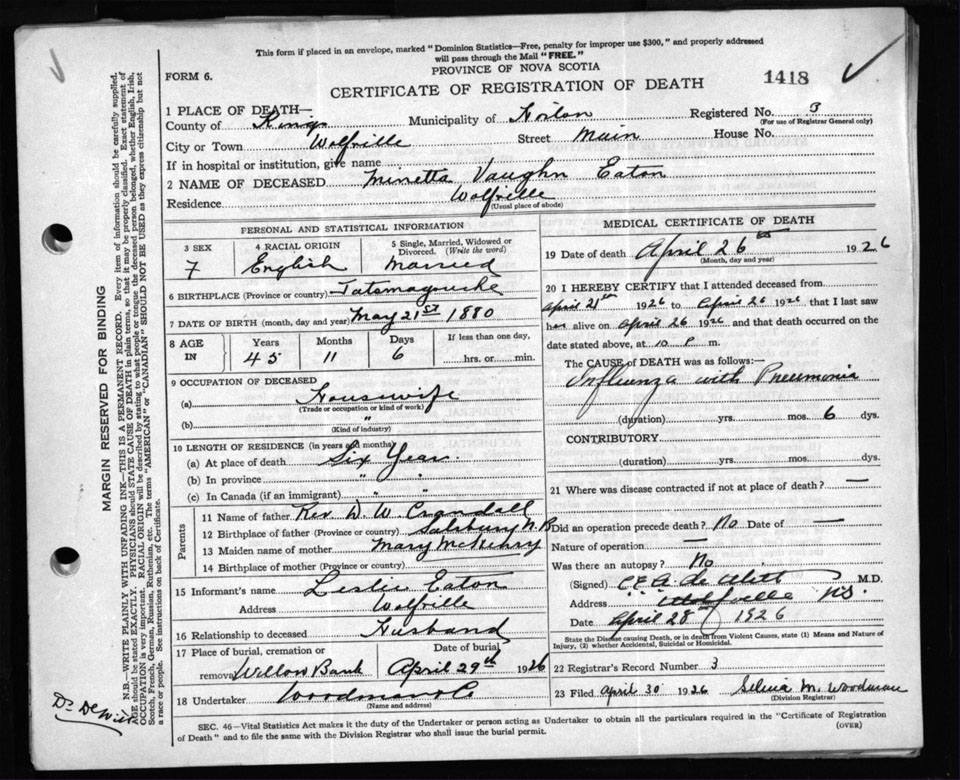 This form if placed in an envelope, marked "Dominion Statistics—Free, penalty for improper use $300," and properly addressed
will pass through the Mail "FREE."
FORM 6.
PROVINCE OF NOVA SCOTIA
CERTIFICATE OF REGISTRATION OF DEATH
1418
1 PLACE OF DEATH—
County of Kings Municipality of Horton Registered No. 3
(For use of Registrar General only)
City or Town Wolfville Street Main House No.
If in hospital or institution, give name
2 NAME OF DECEASED Minetta Vaughn Eaton
Residence Wolfville
(Usual place of abode)
PERSONAL AND STATISTICAL INFORMATION
3 SEX 4 RACIAL ORIGIN 5 Single, Married, Widowed or Divorced. (Write the word)
F English Married
6 BIRTHPLACE (Province or country) Tatamagouche
7 DATE OF BIRTH (month, day and year) May 21st 1880
8 AGE IN Years Months Days If less than one day,
45 11 6 hrs. or min.
9 OCCUPATION OF DECEASED
(a) Housewife
(Trade or occupation or kind of work)
(b) "
(Kind of industry)
10 LENGTH OF RESIDENCE (in years and months)
(a) At place of death Six Years
(b) In province " "
(c) In Canada (if an immigrant) " "
Parents
11 Name of father Rev. D. W. Crandall
12 Birthplace of father (Province or country) Salsbury N.B
13 Maiden name of mother Mary McHenry
14 Birthplace of mother (Province or country)
15 Informant's name Leslie Eaton
Address Wolfville
16 Relationship to deceased Husband
17 Place of burial, cremation or removal Willow Bank Date of burial April 29th 1926
18 Undertaker Woodman & Co
(Name and address)
MEDICAL CERTIFICATE OF DEATH
19 Date of death April 26th 1926
(Month, day and year)
20 I HEREBY CERTIFY that I attended deceased from
April 21st 1926 to April 26 1926 that I last saw
her alive on April 26 1926 and that death occurred on the
date stated above, at 10 P m.
The CAUSE of DEATH was as follows:—
Influenza with Pneumonia
(duration) yrs. mos. 6 dys.
CONTRIBUTORY
(duration) yrs. mos. dys.
21 Where was disease contracted if not at place of death? —
Did an operation precede death? No Date of —
Nature of operation —
Was there an autopsy? No
(Signed) C.E.A. de Witt M.D.
Address Wolfville N.S.
Date April 28th 1926
State the Disease causing Death, or in death from Violent Causes, state (1) Means and Nature of
Injury, (2) whether Accidental, Suicidal or Homicidal.
22 Registrar's Record Number 3
23 Filed April 30 1926 Selina M. Woodman
(Division Registrar)
SEC. 46—Vital Statistics Act makes it the duty of the Undertaker or person acting as Undertaker to obtain all the particulars required in the "Certificate of Registration
of Death" and to file the same with the Division Registrar who shall issue the burial permit.
(OVER)
MARGIN RESERVED FOR BINDING
N.B.—WRITE PLAINLY WITH UNFADING INK—THIS IS A PERMANENT RECORD. Every item of information should be carefully supplied.
AGE should be stated EXACTLY. PHYSICIANS should STATE CAUSE OF DEATH in plain terms, so that it may be properly classified. Exact statement of
OCCUPATION is very important. RACIAL ORIGIN will be described by stating to what people or tongue the deceased person belonged, whether English, Irish,
Scotch, French, German, Russian, Ruthenian, etc. The terms "AMERICAN" or "CANADIAN" SHOULD NOT BE USED as they express citizenship but not
a race or people. See instructions on back of Certificate.
Dr DeWitt